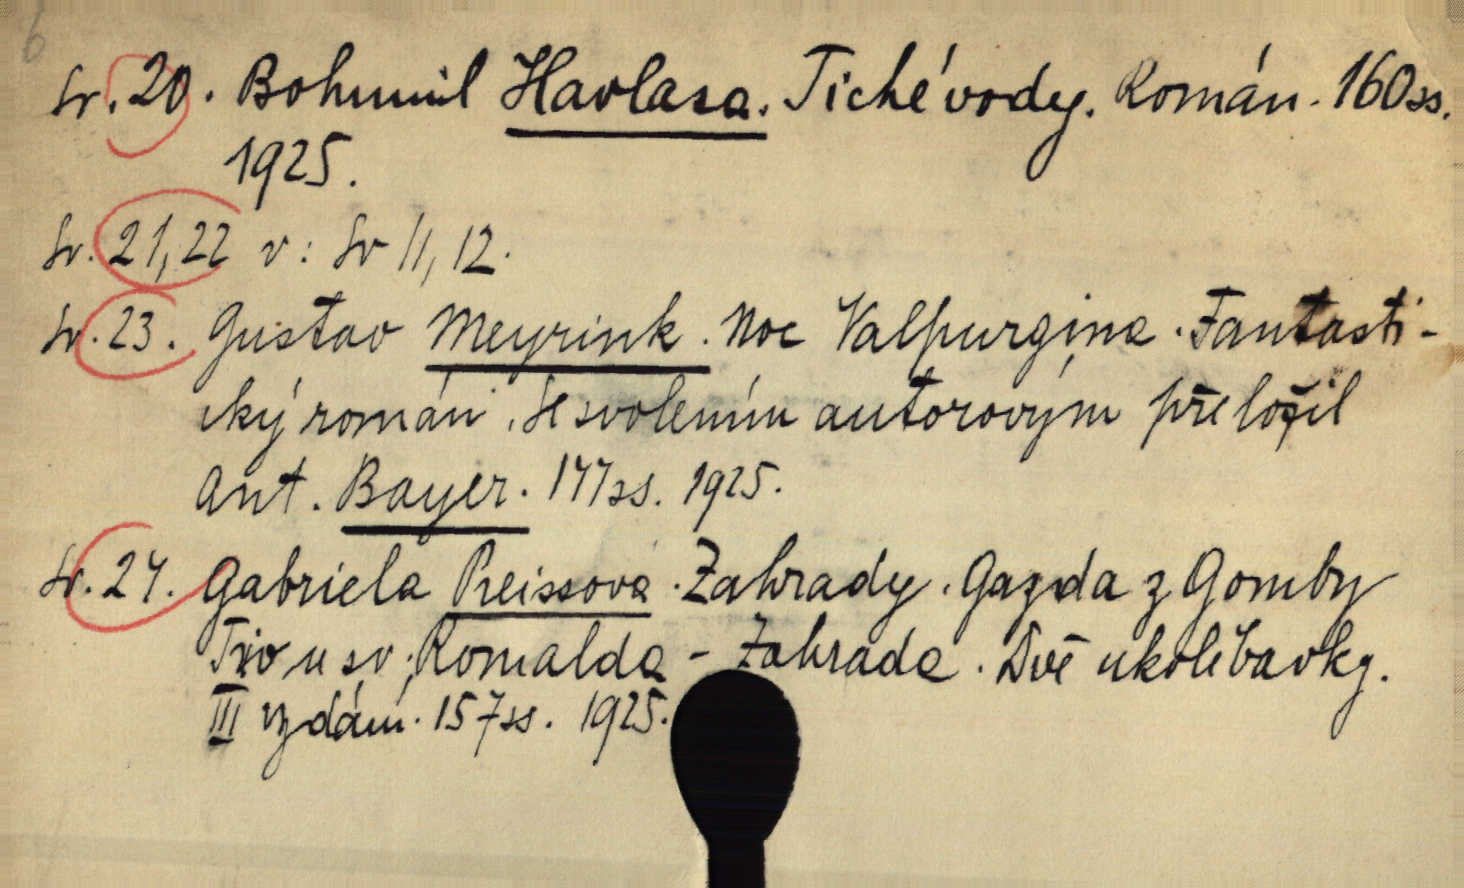 6
Sv. 20. Bohumil Havlasa. Tiché vody. Román. 160 ss.
1925.
Sv. 21, 22 v: Sv 11, 12.
Sv. 23. Gustav Meyrink. Noc Valpurgina. Fantasti-
cký román. Se svolením autorovým přeložil
Ant. Bayer. 177 ss. 1925.
Sv. 24. Gabriela Preissova. Zahrady. Gazda z Gomby
Trio u sv. Romalda - Zahrada. Dvě ukolébavky.
III vydání. 157 ss. 1925.